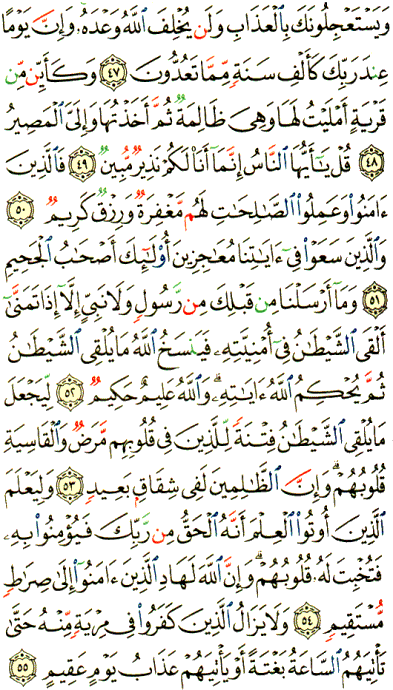 وَيَسْتَعْجِلُونَكَ بِالْعَذَابِ وَلَن يُخْلِفَ اللَّهُ وَعْدَهُۥ وَإِنَّ يَوْمًا
عِندَ رَبِّكَ كَأَلْفِ سَنَةٍ مِّمَّا تَعُدُّونَ ٤٧ وَكَأَيِّن مِّن
قَرْيَةٍ أَمْلَيْتُ لَهَا وَهِىَ ظَالِمَةٌ ثُمَّ أَخَذْتُهَا وَإِلَىَّ الْمَصِيرُ
٤٨ قُلْ يَٰٓأَيُّهَا النَّاسُ إِنَّمَآ أَنَا۠ لَكُمْ نَذِيرٌ مُّبِينٌ ٤٩ فَالَّذِينَ
ءَامَنُوا۟ وَعَمِلُوا۟ الصَّٰلِحَٰتِ لَهُم مَّغْفِرَةٌ وَرِزْقٌ كَرِيمٌ ٥٠
وَالَّذِينَ سَعَوْا۟ فِىٓ ءَايَٰتِنَا مُعَٰجِزِينَ أُو۟لَٰٓئِكَ أَصْحَٰبُ الْجَحِيمِ
٥١ وَمَآ أَرْسَلْنَا مِن قَبْلِكَ مِن رَّسُولٍ وَلَا نَبِىٍّ إِلَّآ إِذَا تَمَنَّىٰٓ
أَلْقَى الشَّيْطَٰنُ فِىٓ أُمْنِيَّتِهِۦ فَيَنسَخُ اللَّهُ مَا يُلْقِى الشَّيْطَٰنُ
ثُمَّ يُحْكِمُ اللَّهُ ءَايَٰتِهِۦ ۗ وَاللَّهُ عَلِيمٌ حَكِيمٌ ٥٢ لِّيَجْعَلَ
مَا يُلْقِى الشَّيْطَٰنُ فِتْنَةً لِّلَّذِينَ فِى قُلُوبِهِم مَّرَضٌ وَالْقَاسِيَةِ
قُلُوبُهُمْ ۗ وَإِنَّ الظَّٰلِمِينَ لَفِى شِقَاقٍۭ بَعِيدٍ ٥٣ وَلِيَعْلَمَ
الَّذِينَ أُوتُوا۟ الْعِلْمَ أَنَّهُ الْحَقُّ مِن رَّبِّكَ فَيُؤْمِنُوا۟ بِهِۦ
فَتُخْبِتَ لَهُۥ قُلُوبُهُمْ ۗ وَإِنَّ اللَّهَ لَهَادِ الَّذِينَ ءَامَنُوٓا۟ إِلَىٰ صِرَٰطٍ
مُّسْتَقِيمٍ ٥٤ وَلَا يَزَالُ الَّذِينَ كَفَرُوا۟ فِى مِرْيَةٍ مِّنْهُ حَتَّىٰ
تَأْتِيَهُمُ السَّاعَةُ بَغْتَةً أَوْ يَأْتِيَهُمْ عَذَابُ يَوْمٍ عَقِيمٍ ٥٥